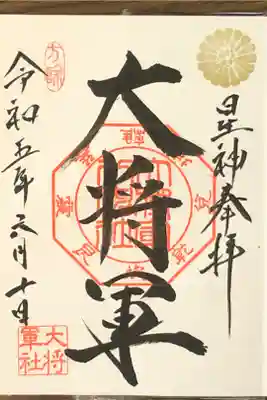 星神奉拝
大将軍
令和五年六月十日
方除
大将
軍社